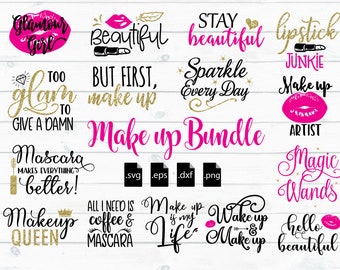 Glamour
Girl
Beautiful
STAY
beautiful
lipstick
JUNKIE
TOO
glam
TO
GIVE A DAMN
BUT FIRST,
make up
Sparkle
Every Day
Make up
ARTIST
Make up Bundle
.svg .eps .dxf .png
Mascara
MAKES EVERYTHING
better!
Magic
Wands
Makeup
QUEEN
ALL I NEED IS
coffee &
MASCARA
Make up
is my
Life
Wake up
& Make up
hello
beautiful